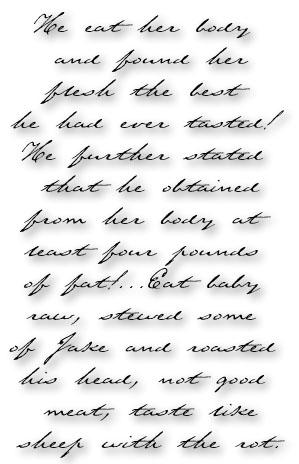 He eat her body
and found her
flesh the best
he had ever tasted!
He further stated
that he obtained
from her body at
least four pounds
of fat!...Eat baby
raw, stewed some
of Jake and roasted
his head, not good
meat, taste like
sheep with the rot.